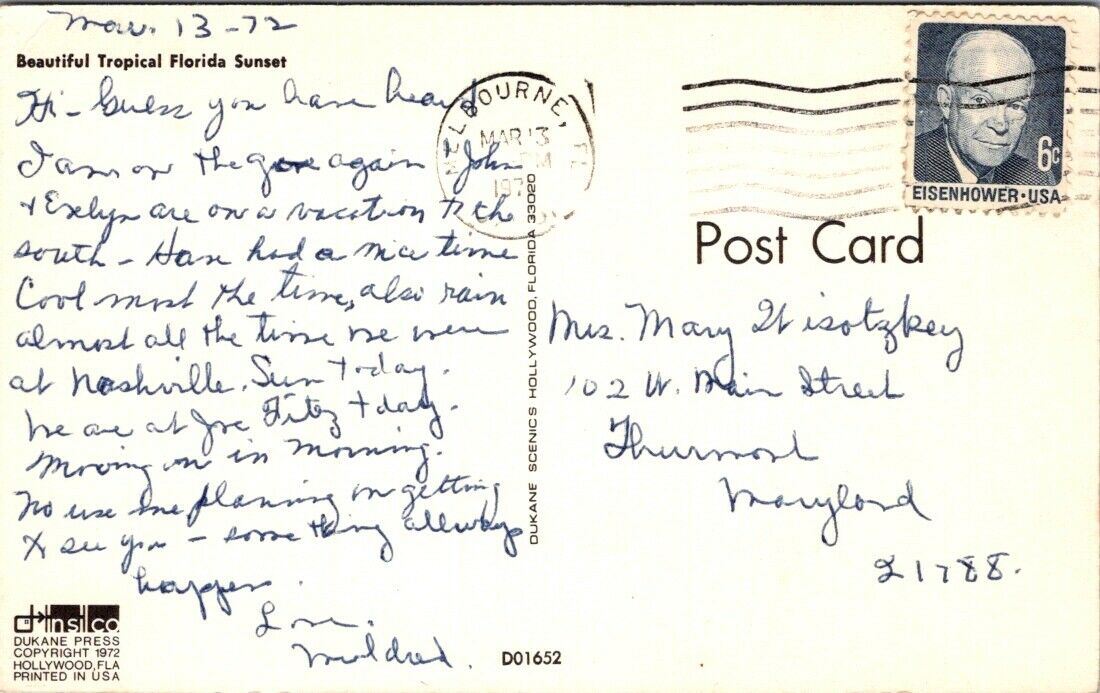 Mar. 13-72
Beautiful Tropical Florida Sunset
Hi - Guess you have heard
I am on the gone again John
+ Evelyn are on a vacation to the
south - Have had a nice time
Cool most the time, also rain
almost all the time we were
at Nashville. Sun today.
We are at Joe Fitez today.
Moving on in morning.
No use me planning on getting
to see you - some thing allways
happen.
Love.
Mildred.
d-insilco
DUKANE PRESS
COPYRIGHT 1972
HOLLYWOOD, FLA
PRINTED IN USA
D01652
DUKANE SCENICS HOLLYWOOD, FLORIDA 33020
MELBOURNE, FL
MAR 13
PM
197
6c
EISENHOWER·USA
Post Card
Mrs. Mary Wisotzkey
102 W. Main Street
Thurmont
Maryland
21788.